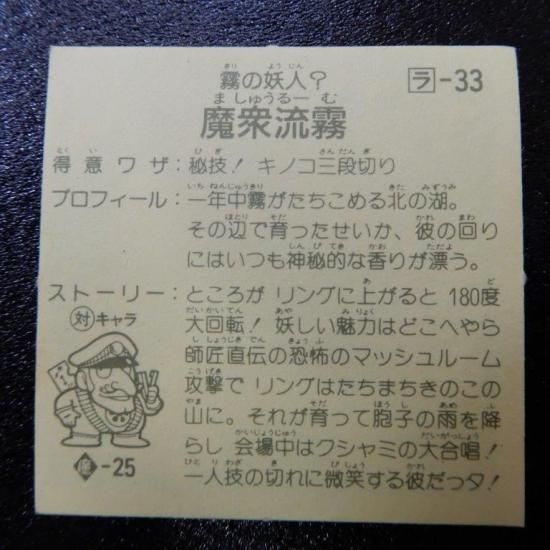 霧の妖人？
ラ-33
魔衆流霧
得意ワザ:秘技！ キノコ三段切り
プロフィール:一年中霧がたちこめる北の湖。
その辺で育ったせいか、彼の回り
にはいつも神秘的な香りが漂う。
ストーリー:ところが リングに上がると 180度
大回転！ 妖しい魅力はどこへやら
師匠直伝の恐怖のマッシュルーム
攻撃で リングはたちまちきのこの
山に。それが育って胞子の雨を降
らし 会場中はクシャミの大合唱！
一人技の切れに微笑する彼だっタ！
対キャラ
魔-25